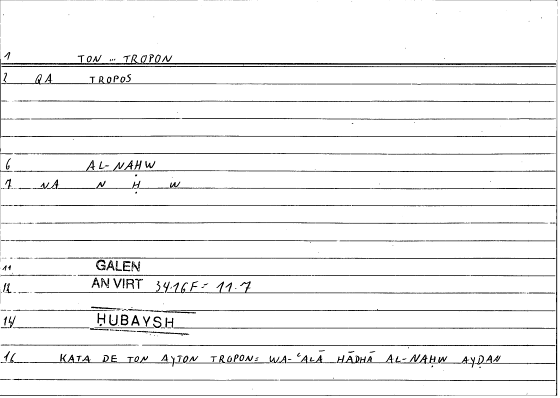 1 TON -- TROPON
2 QA TROPOS
6 AL-NAḤW
7 NA N Ḥ W
11 GALEN
12 AN VIRT 34.16 F = 11.7
14 ḤUBAYSH
16 KATA DE TON AYTON TROPON = WA-ʿALĀ HĀDHĀ AL-NAḤW AYḌAN